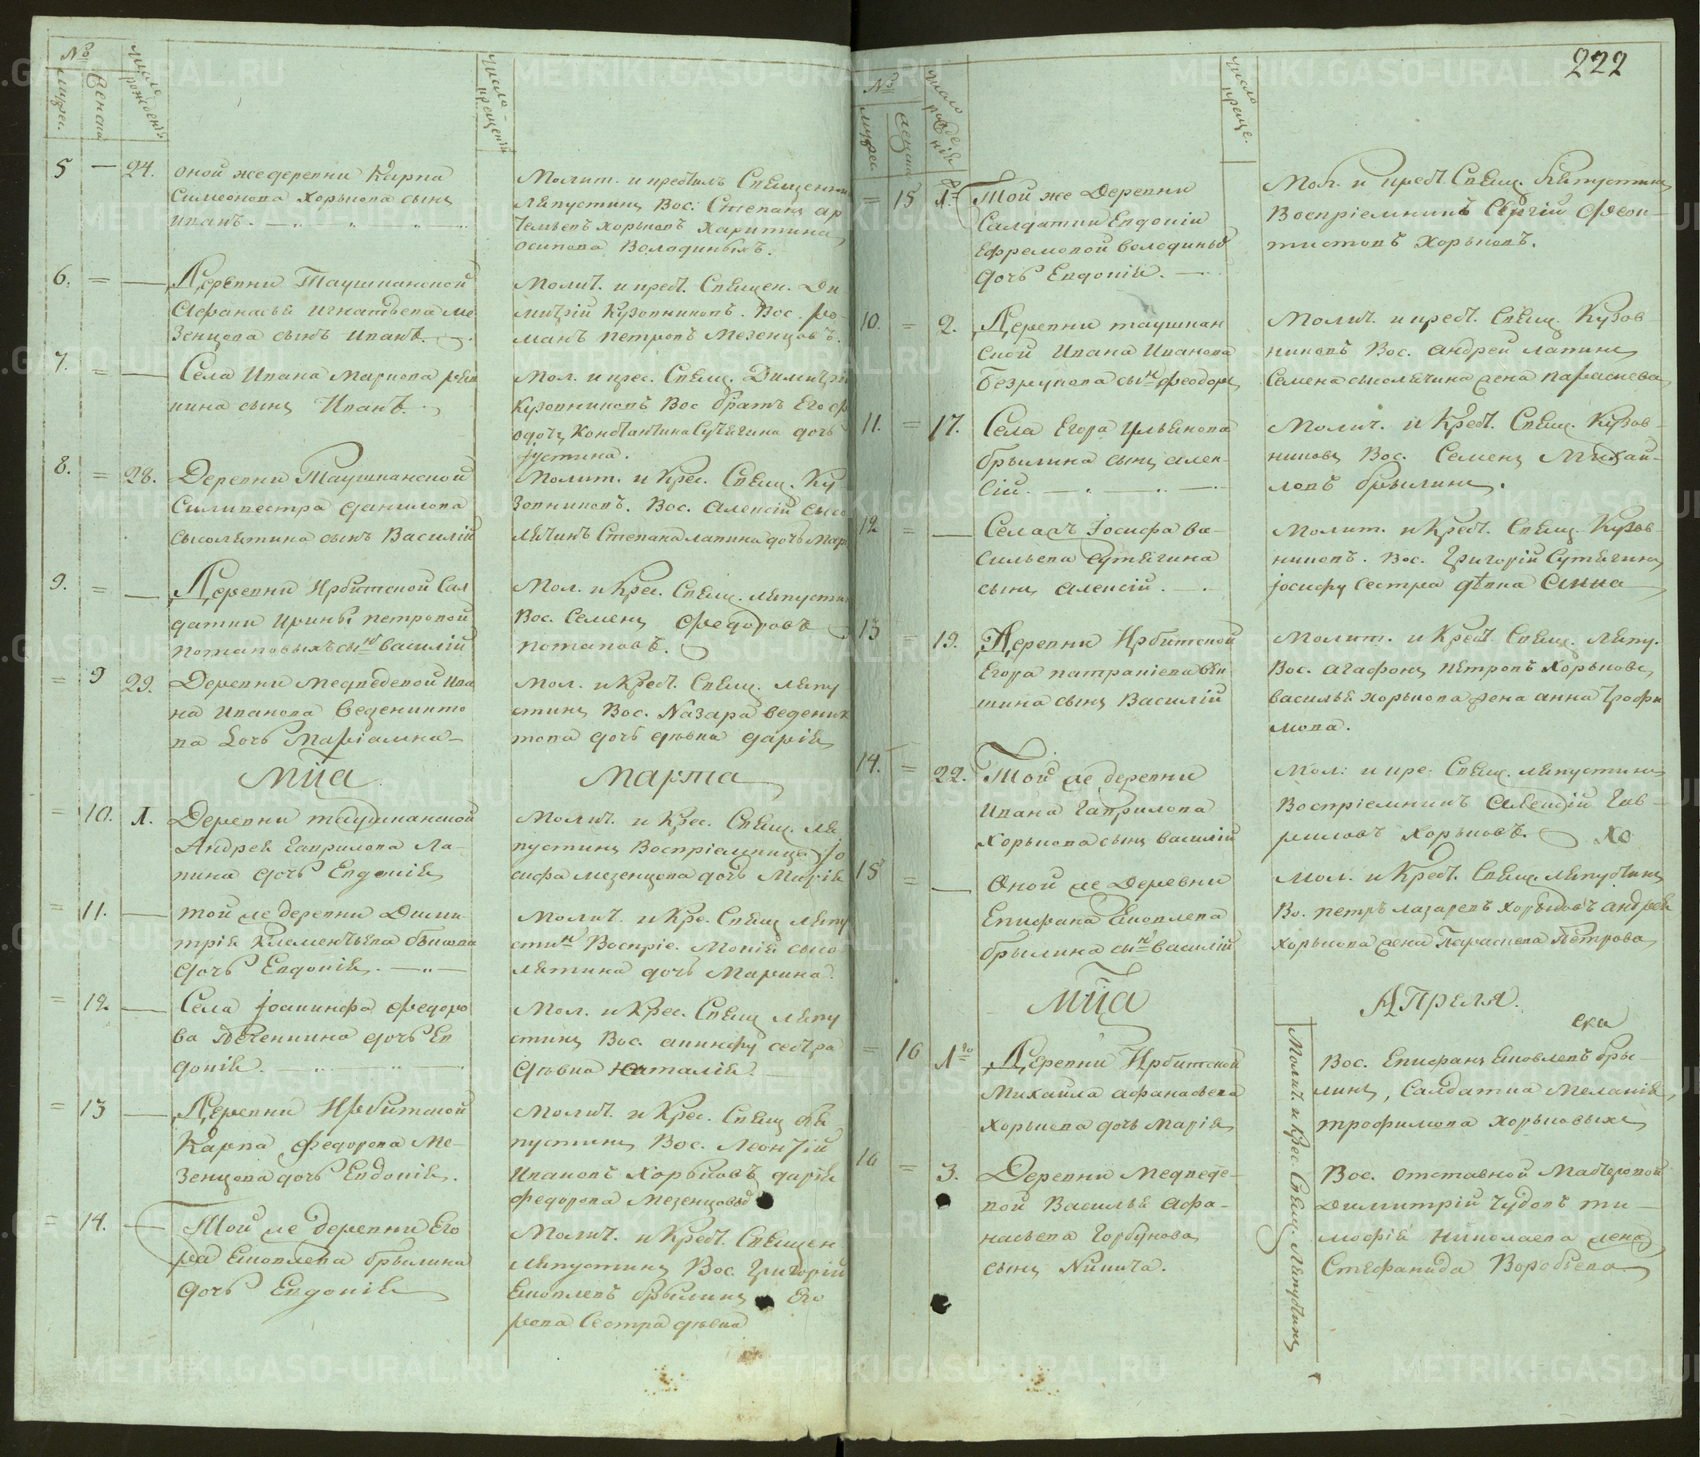 222
№
мужес.
женска
число рожденія
число крещенія
5 — 24. оной же деревни Карпа
Симеонова Хорькова сынъ
Иванъ.
Молит. и крестилъ Священникъ
Ляпустинъ Вос: Степанъ Ар
темьевъ Хорьковъ Харитина
Осипова Володиныхъ.
6. = — Деревни Таушканской
Афанасья Игнатьева Ме
зенцова сынъ Иванъ.
Молит. и крест. Священ. Ди
митрій Кузовниковъ. Вос. Ро
манъ Петровъ Мезенцовъ.
7. = — Села Ивана Маркова
сынъ Иванъ.
Мол. и крес. Свящ. Димитрій
Кузовниковъ Вос братъ Его
Константина Сутягина дочь
Устина.
8. = 28. Деревни Таушканской
Силивестра Данилова
Сысолятина сынъ Василій
Молит. и Крес. Свящ. Ку
зовниковъ. Вос. Алексій Сысо
лятинъ Степана Лапина дочь
9. = — Деревни Ирбитской Сал
датки Ирины Петровой
Потаповыхъ сынъ Василій
Мол. и Крес. Свящ. Ляпустин
Вос. Семенъ Федоровъ
Потаповъ.
= 9 29. Деревни Медведевой Ива
на Иванова Веденикто
ва Дочь Маріамна
Мол. и Крест. Свящ. Ляпу
стинъ Вос. Назара Веденик
това дочь девка Дарія
Мца Марта
= 10. 1. Деревни Таушканской
Андрея Гаврилова Ла-
пина дочь Евдокія
Молит. и Крес. Свящ. Ля
пустинъ Воспріемница Іо
сифа Мезенцова дочь Марія
= 11. — той же деревни Дими
трія Клементьева Быкова
дочь Евдокія.
Молит. и Кре. Свящ Ляпу
стинъ Воспріе. Мокія Сысо
лятина дочь Марина.
= 12 — Села Іоакинфа Федоро
ва дочь Ев
докія.
Мол. и Крес. Свящ Ляпу
стинъ Вос. Акинфу сестра
девка Наталія
= 13 — Деревни Ирбитской
Карпа Федорова Ме-
зенцова дочь Евдокія.
Молит. и Крес. Свящ Ля
пустинъ Вос. Леонтій
Ивановъ Хорьковъ Дарія
Федорова Мезенцовы
= 14. — Той же деревни Его
ра Яковлева Брылина
дочь Евдокія
Молит. и Крест. Священ
Ляпустинъ Вос. Григорій
Яковлевъ Брылинъ Его
рова Сестра девка
№
мужес
женска
число рожденія
число креще.
= 15 1. Той же Деревни
Салдатки Евдокіи
Ефремовой Володиныхъ
дочь Евдокія.
Мол. и крест. Свящ. Ляпустинъ
Воспріемникъ Сергій Феок-
тистовъ Хорьковъ.
10. = 2. Деревни Таушкан
ской Ивана Иванова
Безрукова сынъ Феодоръ
Молит. и крест. Свящ. Кузов-
никовъ Вос. Андрей Лапинъ
Семена Сысолятина жена Параскева
11. = 17. Села Егора Ульянова
Брылина сынъ Алек-
сій.
Молит. и Крест. Свящ. Кузов-
никовъ Вос. Семенъ Михай-
ловъ Брылинъ.
12 = — Села Іосифа Ва-
сильева Сутягина
сынъ Алексій.
Молит. и Крест. Свящ. Кузов-
никовъ. Вос. Григорій Сутягинъ
Іосифу Сестра девка Анна
13 = 19. Деревни Ирбитской
Егора Патракіева
сынъ Василій
Молит. и Крест. Свящ. Ляпу.
Вос. Агафонъ Петровъ Хорьковъ
Василья Хорькова жена Анна Трофи
мова.
14. = 22. Той же деревни
Ивана Гаврилова
Хорькова сынъ Василій
Мол: и кре: Свящ. Ляпустинъ
Воспріемникъ Алексій Гав-
риловъ Хорьковъ.
15 = — Оной же Деревни
Епифана Яковлева
Брылина сынъ Василій
Мол. и Крест. Свящ. Ляпустинъ
Во. Петръ Лазаревъ Хорьковъ Андрея
Хорькова жена Параскева Петрова
Мца Апреля.
= 16 1го Деревни Ирбитской
Михаила Афанасьева
Хорькова дочь Марія
Вос. Епифанъ Яковлевъ Бры-
линъ, Салдатка Меланія
Трофимова Хорьковыхъ
16 = 3. Деревни Медведе-
вой Василья Афа-
насьева Горбунова
сынъ Никита.
Вос. отставной Мастеровой
Димитрій Чудовъ Ти-
мофія Николаева жена
Стефанида Воробьева
Молит. и Крес. Свящ. Ляпустинъ